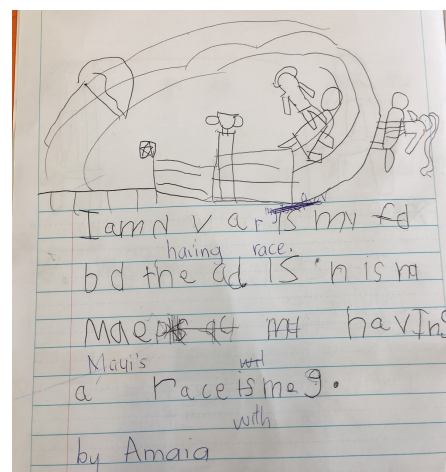 I am N v ar is my fd
having race.
bd the ad is n is my
Mae my having
Mayi's
a race is meg.
with
by Amaia